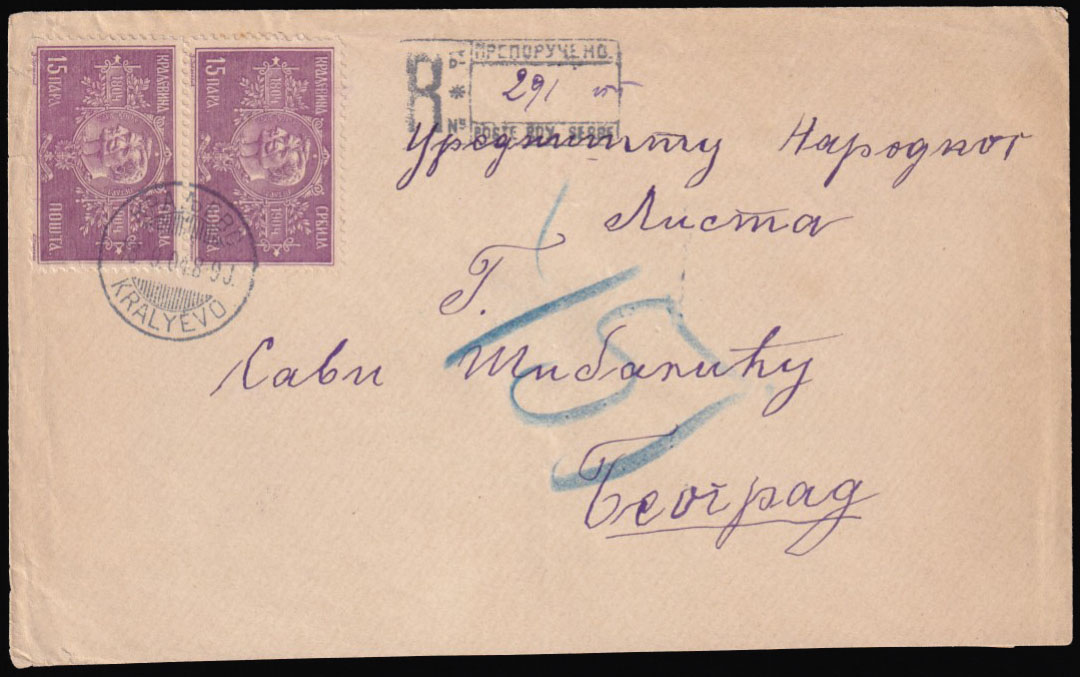 КРАЉЕВИНА СРБИЈА
1804 1904
15 ПАРА ПОШТА
КРАЉЕВИНА СРБИЈА
1804 1904
15 ПАРА ПОШТА
KRALYEVO
R
ПРЕПОРУЧЕНО.
*
291
№
POSTE ROY. SERBE
Уредништву Народног
Листа
Г.
Сави
Београд
15